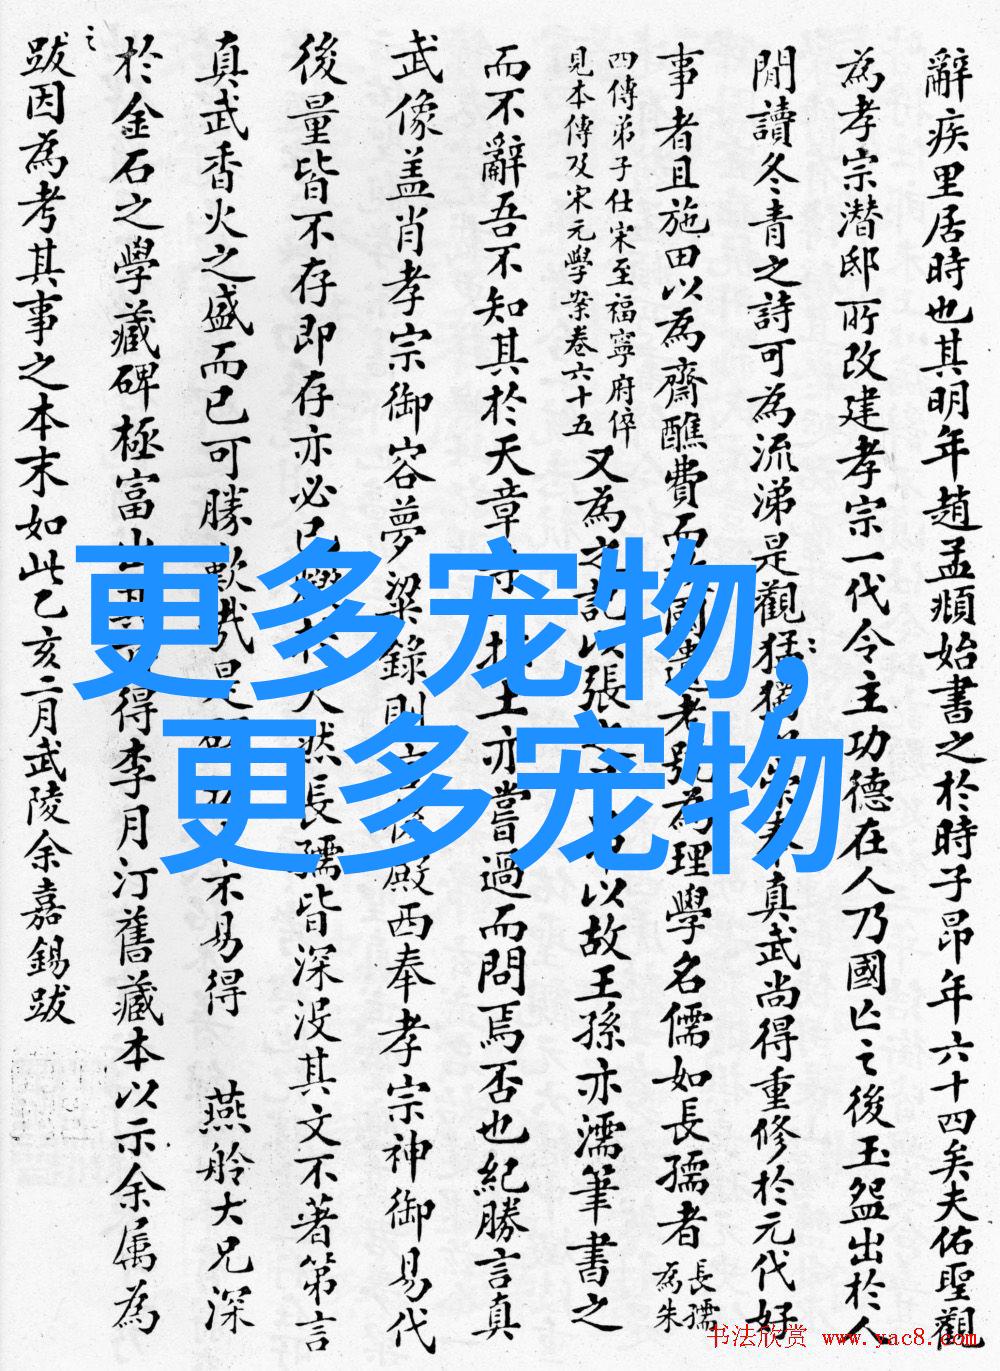 辭疾里居時也其明年趙孟頫始書之於時子昂年六十四矣夫佑聖觀
為孝宗潛邸所改建孝宗一代令主功德在人乃國亡之後玉盌出於人
間讀冬青之詩可為流涕是觀猛獨崇奉真武尚得重修於元代好
事者且施田以為齋醮費而老號為理學名儒如長孺者長孺為朱
四傳弟子仕宋至福寧府倅
見本傳及宋元學案卷六十五
又為之記以張之以故王孫亦濡筆書之
而不辭吾不知其於天章寺土亦嘗過而問焉否也紀勝言真
武像盖肖孝宗御容夢粱錄則言後殿西奉孝宗神御易代
後量皆不存即存亦必已然長孺皆深没其文不著第言
真武香火之盛而已可勝歎哉是不易得 燕舲大兄深
於金石之學藏碑極富得李月汀舊藏本以示余属為
之
跋因為考其事之本末如此乙亥二月武陵余嘉錫跋
更多宠物,
更多宠物
书法欣赏 www.yac8.com